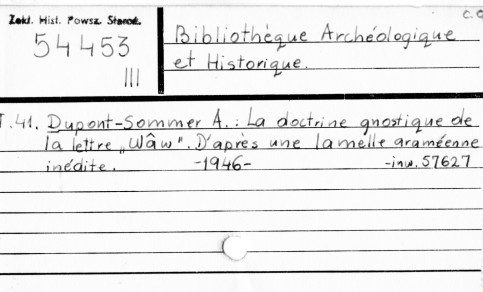 Zakł. Hist. Powsz. Staroż.
C.
54453
III
Bibliothèque Archéologique
et Historique.
T.41. Dupont-Sommer A.: La doctrine gnostique de
la lettre „Wâw". D'après une lamelle araméenne
inédite. -1946- -inw. 57627